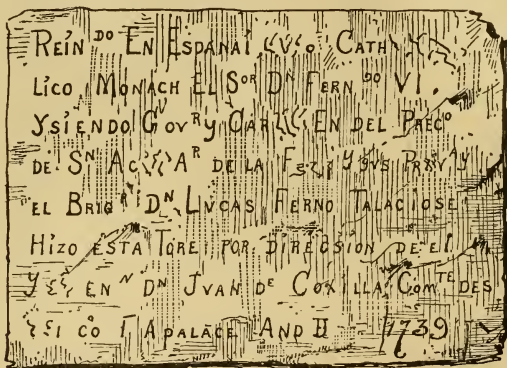 REIN DO EN ESPANAI V O CATH
LICO MONACH EL SOR DN FERN DO VI.
YSIENDO GOVR Y CAR EN DEL PRECO
DE SN AC AR DE LA F Y SVS PRXVAY
EL BRIGR DN LVCAS FERNO TALACIOSE
HIZO ESTA TORE POR DIRECSION DE EL
Y EN N DN JVAN DE COXILLA COMTE DES
I CO I APALACE AND II 1739